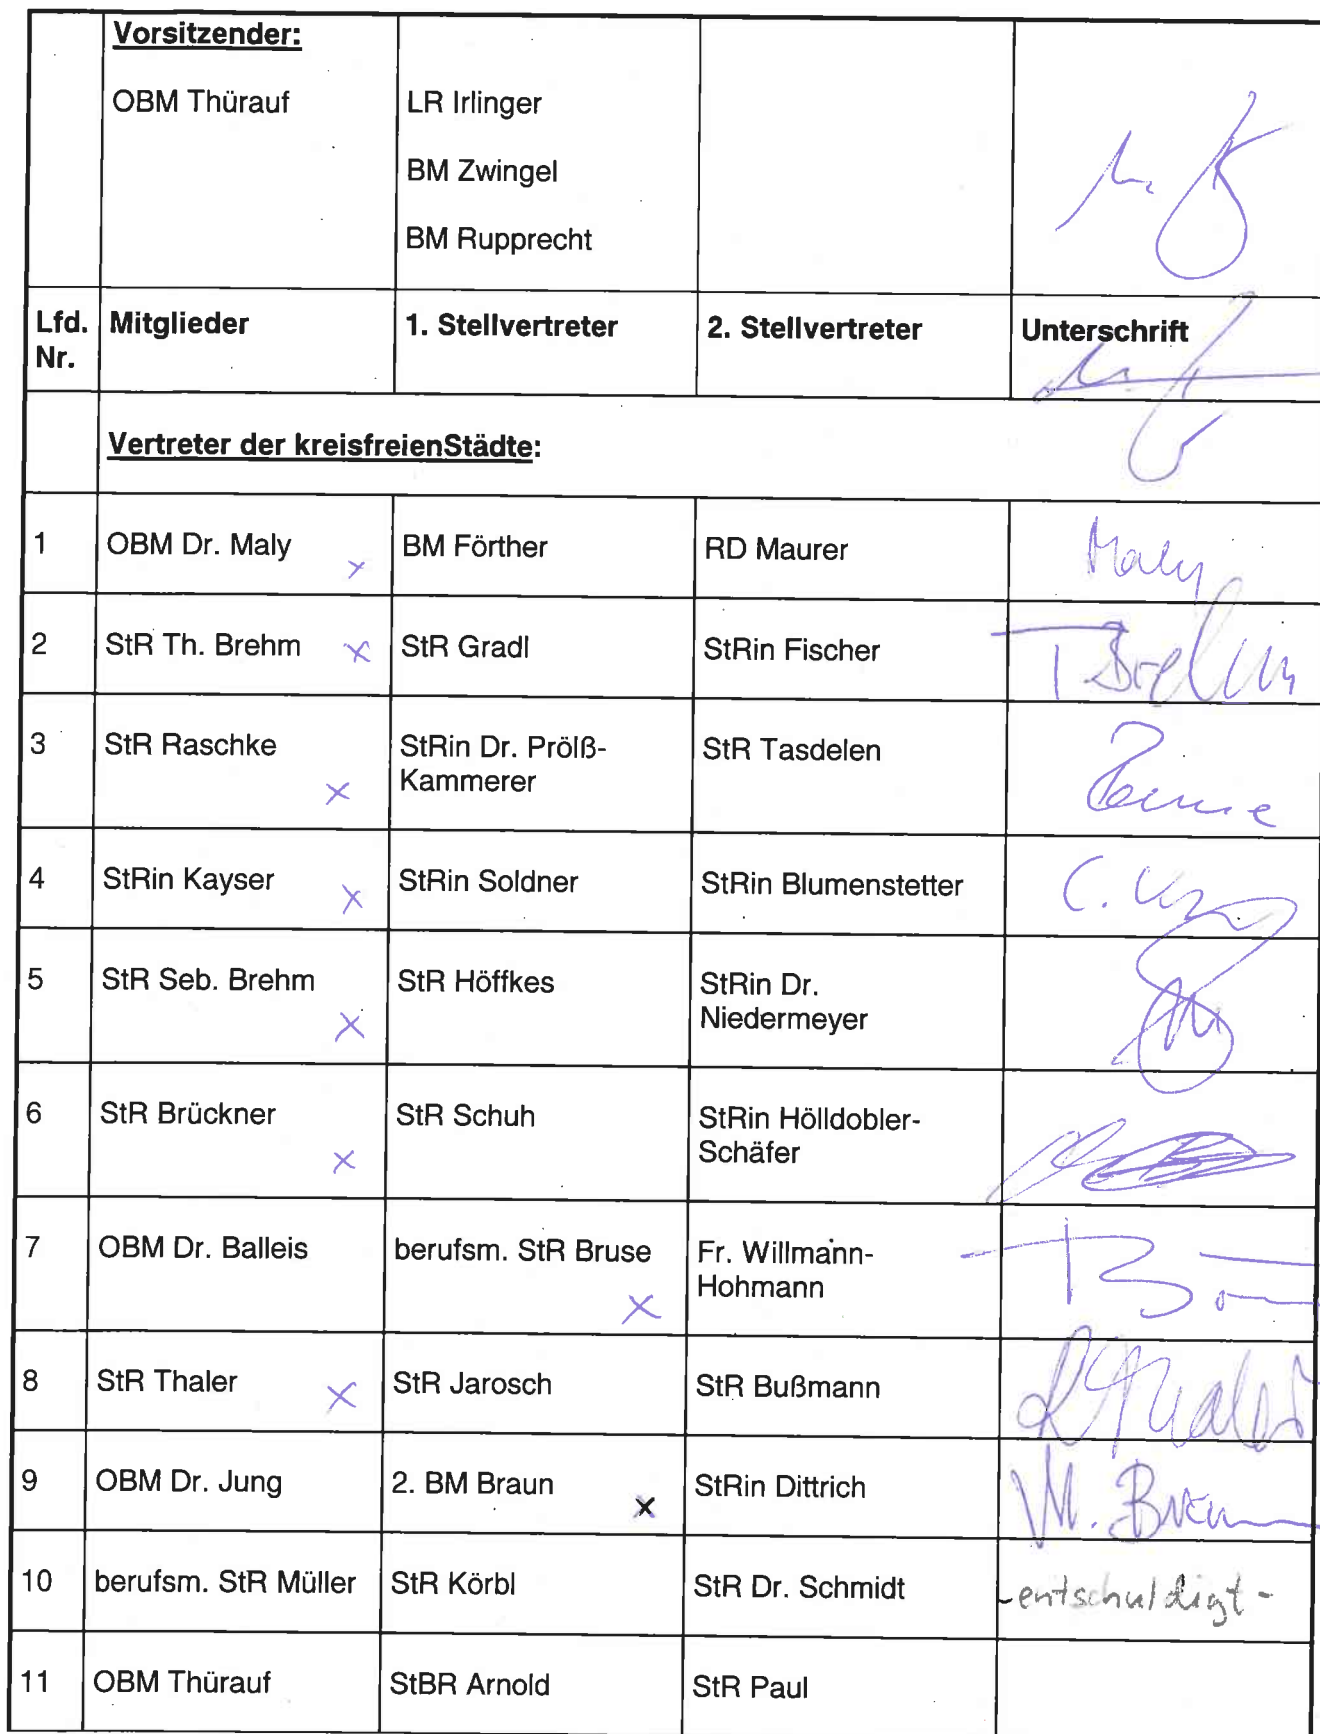 Vorsitzender:
OBM Thürauf LR Irlinger
BM Zwingel
BM Rupprecht
Lfd. Nr. Mitglieder 1. Stellvertreter 2. Stellvertreter Unterschrift
Vertreter der kreisfreienStädte:
1 OBM Dr. Maly x BM Förther RD Maurer Maly
2 StR Th. Brehm x StR Gradl StRin Fischer T Brehm
3 StR Raschke x StRin Dr. Prölß- StR Tasdelen
Kammerer
4 StRin Kayser x StRin Soldner StRin Blumenstetter
5 StR Seb. Brehm x StR Höffkes StRin Dr.
Niedermeyer
6 StR Brückner x StR Schuh StRin Hölldobler-
Schäfer
7 OBM Dr. Balleis berufsm. StR Bruse x Fr. Willmann-
Hohmann
8 StR Thaler x StR Jarosch StR Bußmann Thaler
9 OBM Dr. Jung 2. BM Braun x StRin Dittrich M. Braun
10 berufsm. StR Müller StR Körbl StR Dr. Schmidt -entschuldigt-
11 OBM Thürauf StBR Arnold StR Paul